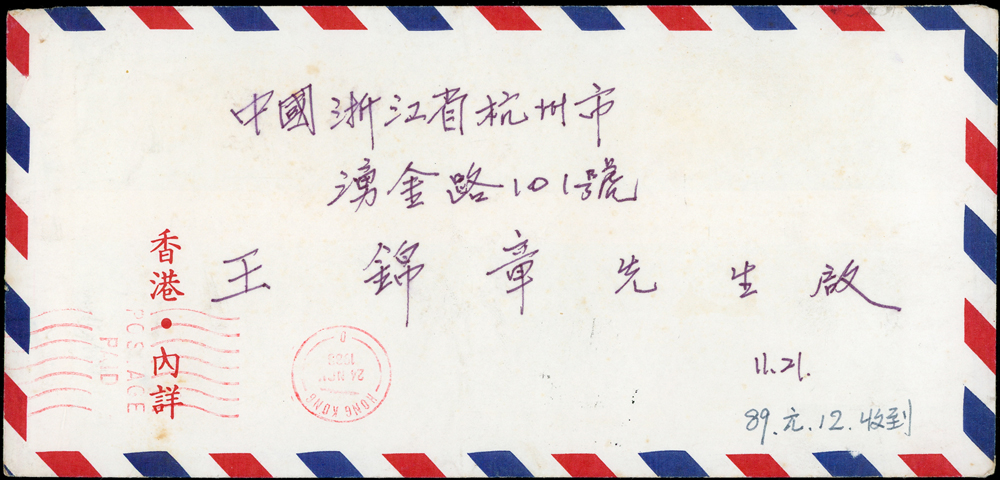 中國浙江省杭州市
湧金路101號
王錦章先生啟
香港・內詳
POSTAGE
PAID
HONG KONG
24 NOV
1988
D
11.21.
89.元.12.收到